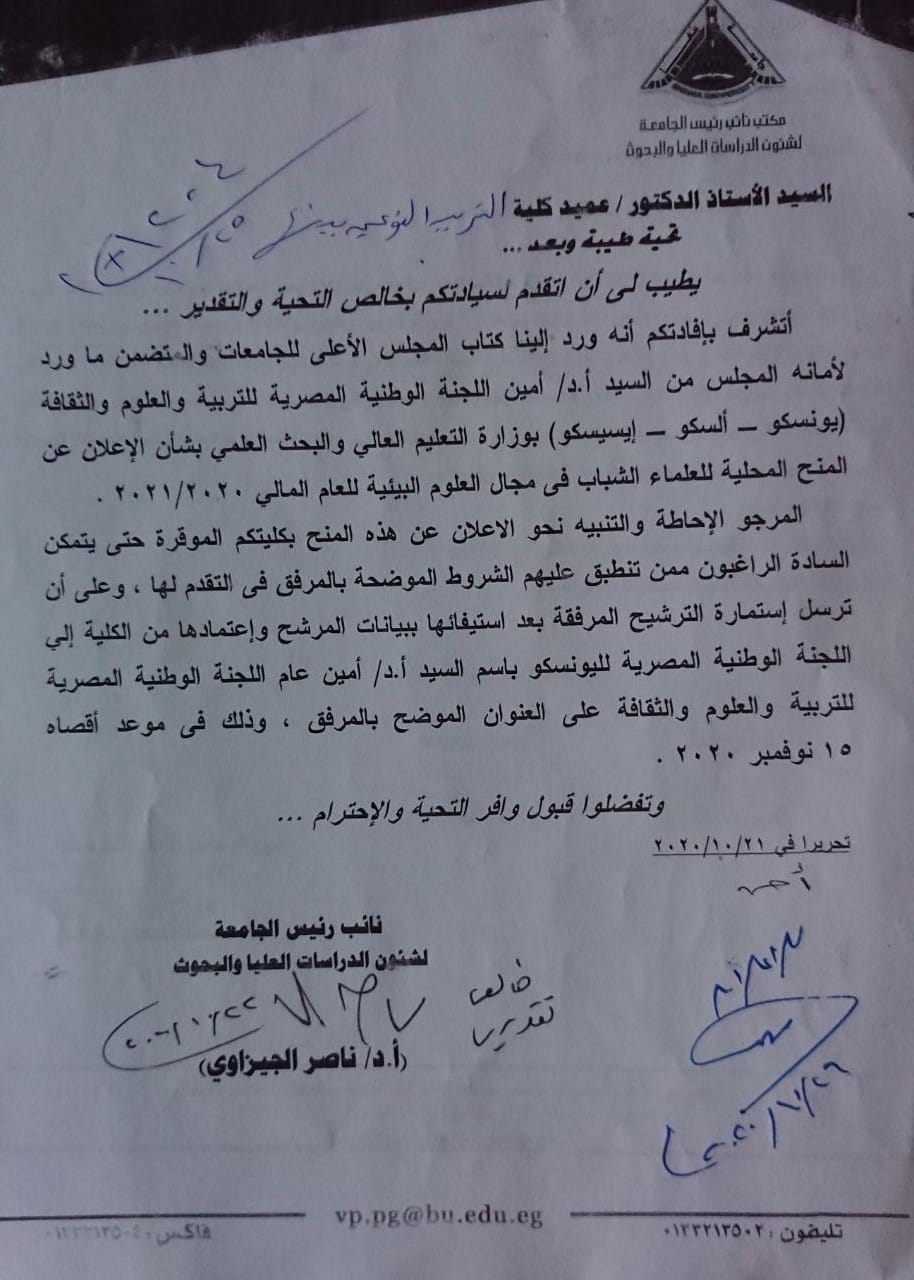 BENHA UNIVERSITY
مكتب نائب رئيس الجامعة
لشئون الدراسات العليا والبحوث
السيد الأستاذ الدكتور / عميد كلية التربية النوعية ببنها
تحية طيبة وبعد ...
يطيب لى أن اتقدم لسيادتكم بخالص التحية والتقدير ...
أتشرف بإفادتكم أنه ورد إلينا كتاب المجلس الأعلى للجامعات والمتضمن ما ورد
لأمانه المجلس من السيد أ.د/ أمين اللجنة الوطنية المصرية للتربية والعلوم والثقافة
(يونسكو – ألسكو – إيسيسكو) بوزارة التعليم العالي والبحث العلمي بشأن الإعلان عن
المنح المحلية للعلماء الشباب فى مجال العلوم البيئية للعام المالي ٢٠٢١/٢٠٢٠ .
المرجو الإحاطة والتنبيه نحو الاعلان عن هذه المنح بكليتكم الموقرة حتى يتمكن
السادة الراغبون ممن تنطبق عليهم الشروط الموضحة بالمرفق فى التقدم لها ، وعلى أن
ترسل إستمارة الترشيح المرفقة بعد استيفائها ببيانات المرشح وإعتمادها من الكلية إلي
اللجنة الوطنية المصرية لليونسكو باسم السيد أ.د/ أمين عام اللجنة الوطنية المصرية
للتربية والعلوم والثقافة على العنوان الموضح بالمرفق ، وذلك فى موعد أقصاه
١٥ نوفمبر ٢٠٢٠ .
وتفضلوا قبول وافر التحية والإحترام ...
تحريرا في ٢٠٢٠/١٠/٢١
نائب رئيس الجامعة
لشئون الدراسات العليا والبحوث
خالص
تقديرى
(أ.د/ ناصر الجيزاوي)
vp.pg@bu.edu.eg
تليفون : ٠١٣٣٢١٣٥٠٢
فاكس : ٠١٣٣٢١٣٥٠٤